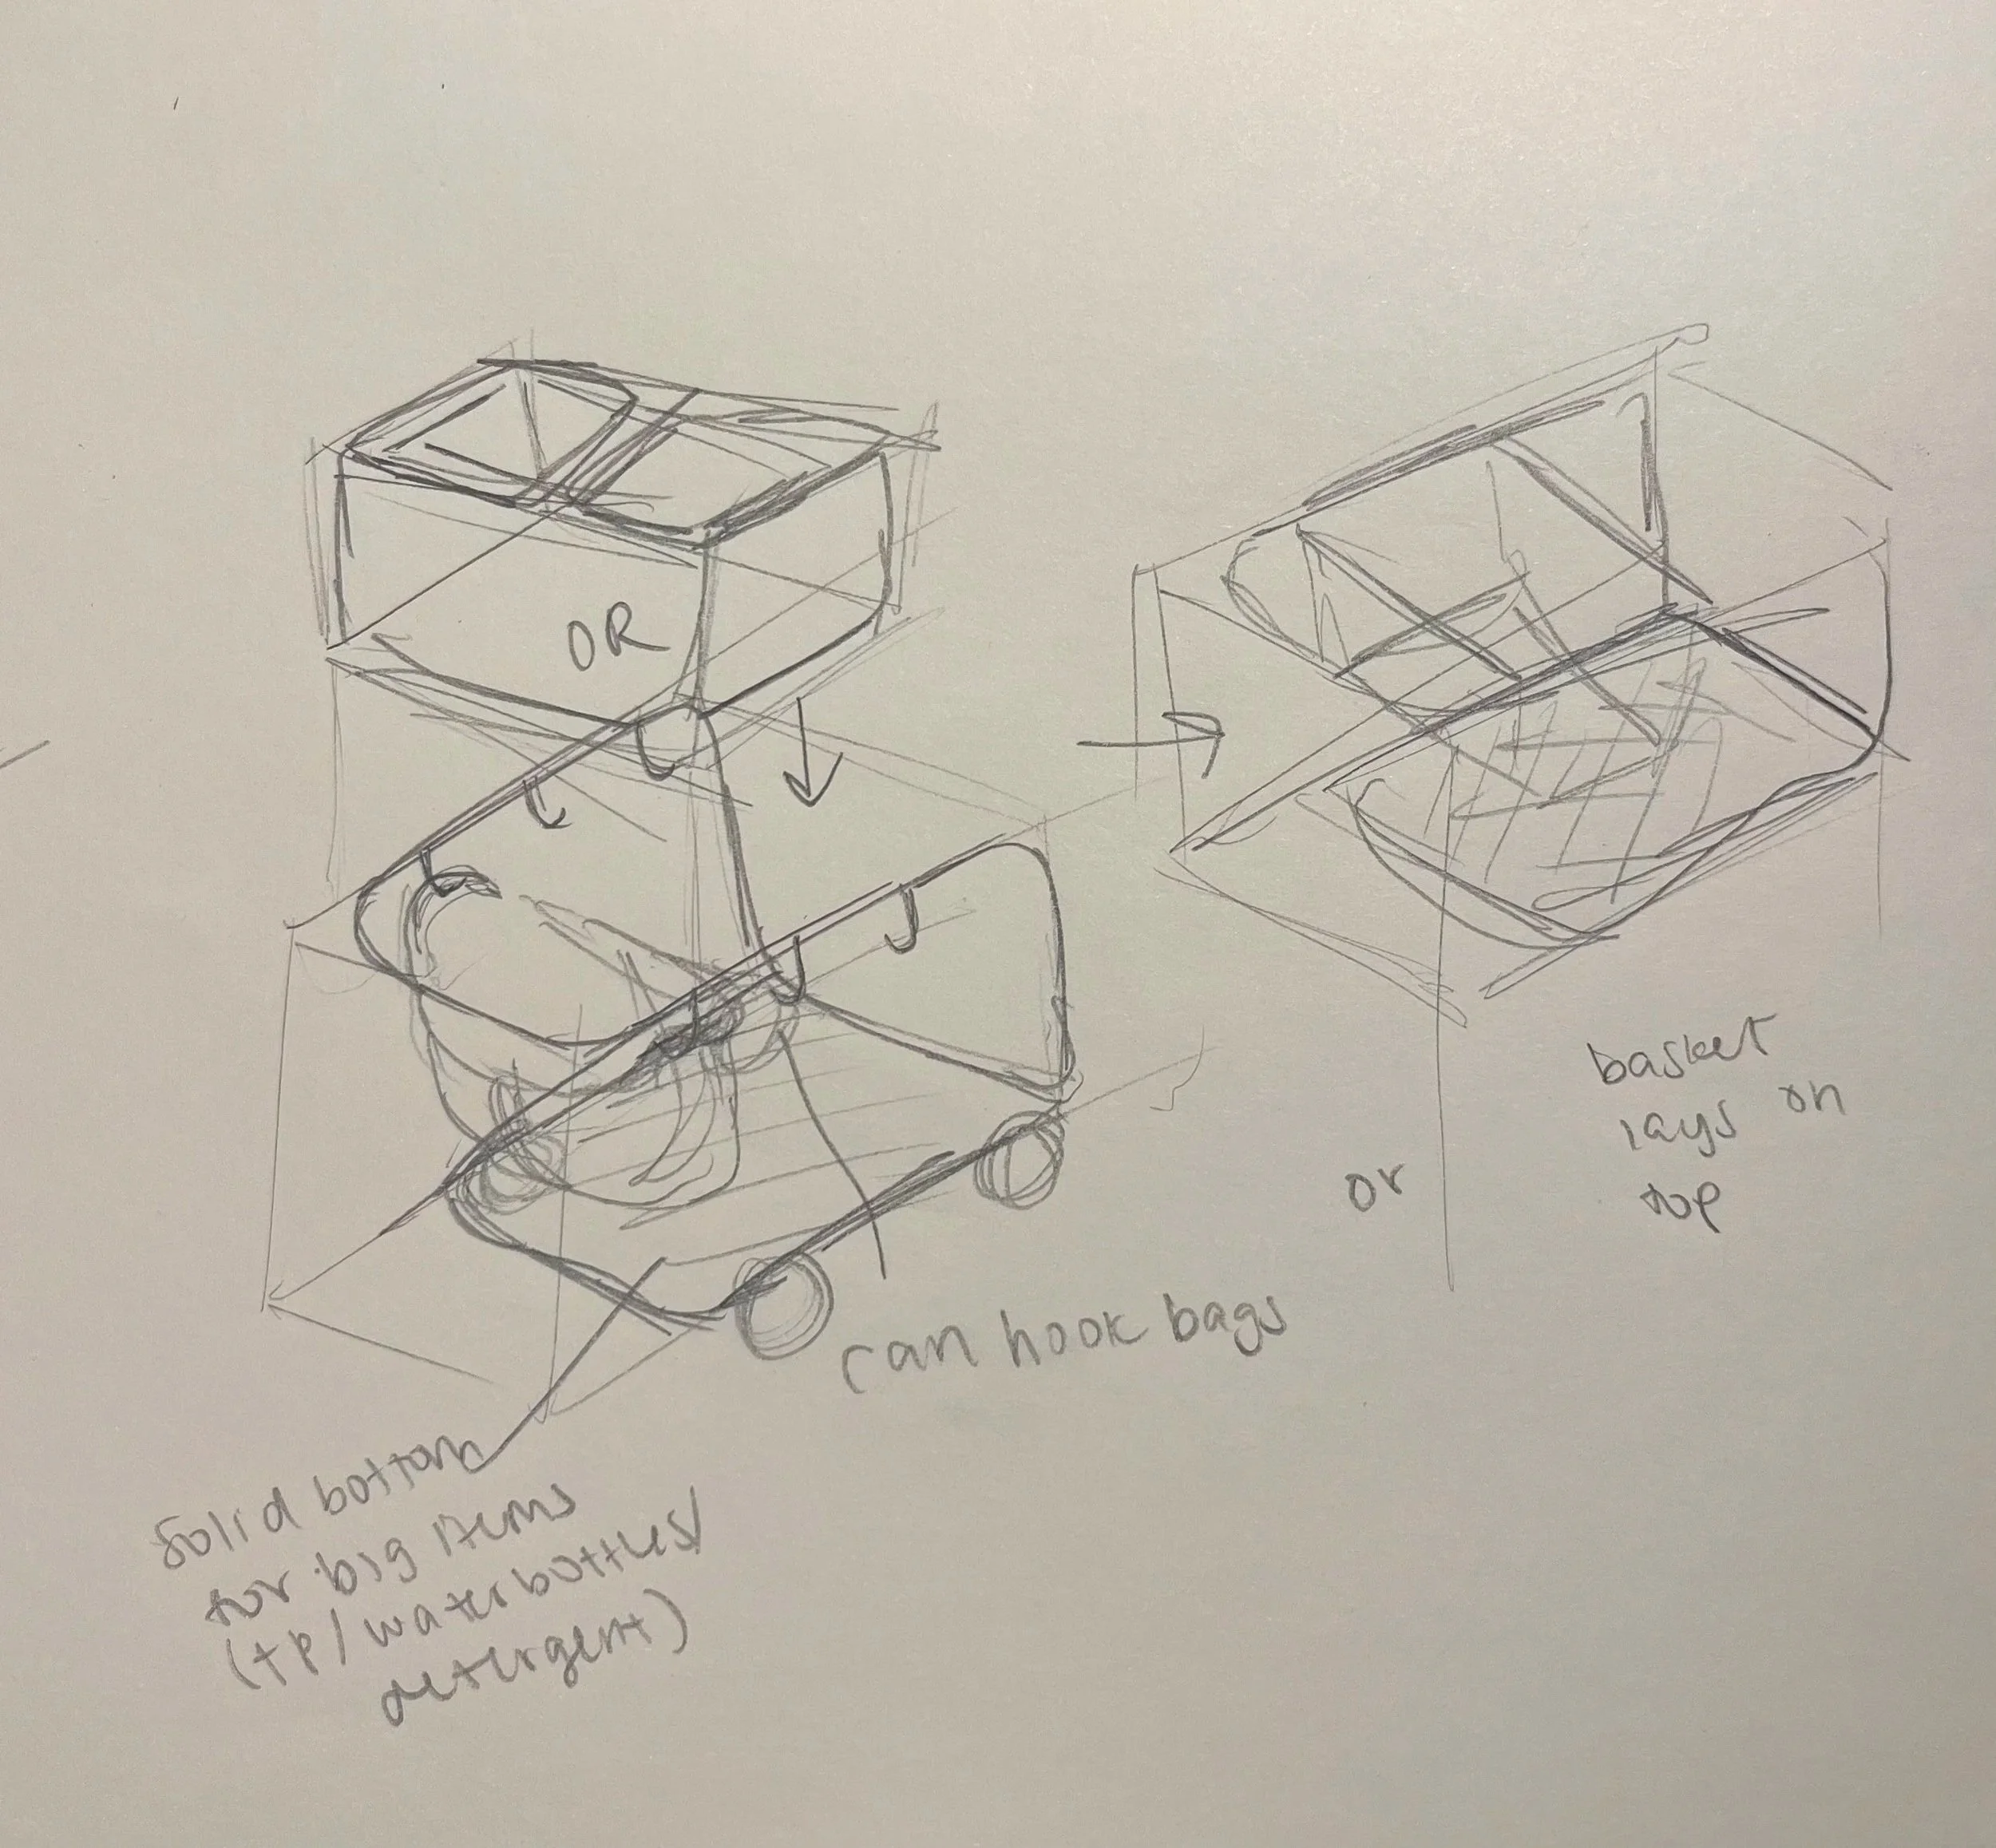 OR
basket
lays on
top
or
can hook bags
Solid bottom
for big items
(tp/waterbottles/
detergent)